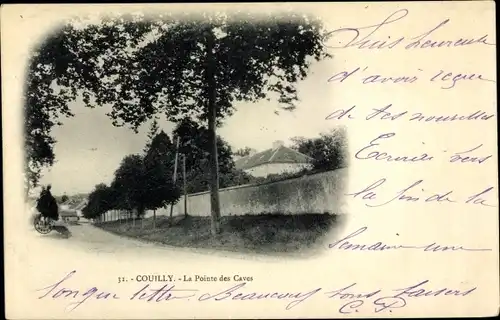 Suis heureuse
d'avoir reçue
de tes nouvelles
Ecrirai vers
la fin de la
semaine une
31. - COUILLY. - La Pointe des Caves
longue lettre Beaucoup bons baisers
C. P.